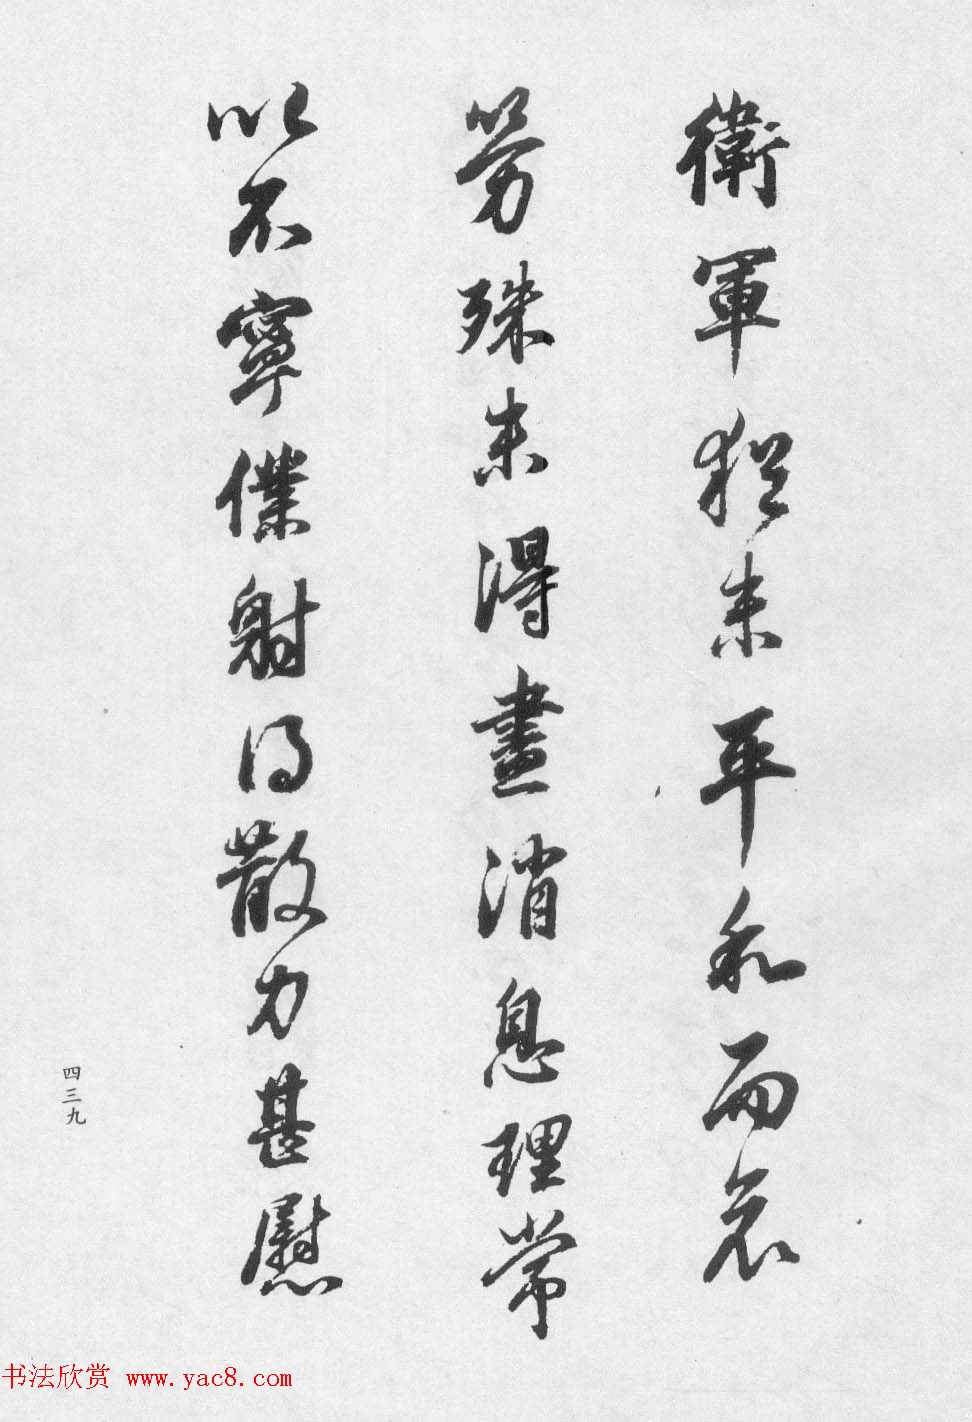 衛軍猶未平和而哀
勞殊未得盡消息理常
以不寧僕射得散力甚慰
四三九
书法欣赏 www.yac8.com